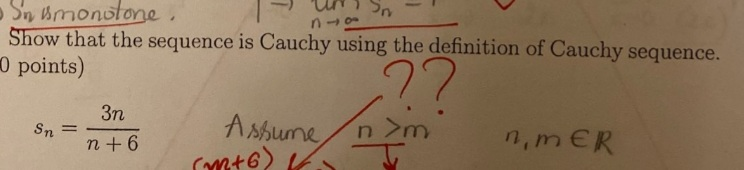 Sn is monotone.
lim Sn
n→∞
Show that the sequence is Cauchy using the definition of Cauchy sequence.
0 points)
??
sn = 3n / n + 6
Assume n > m n, m ∈ R
(m+6)